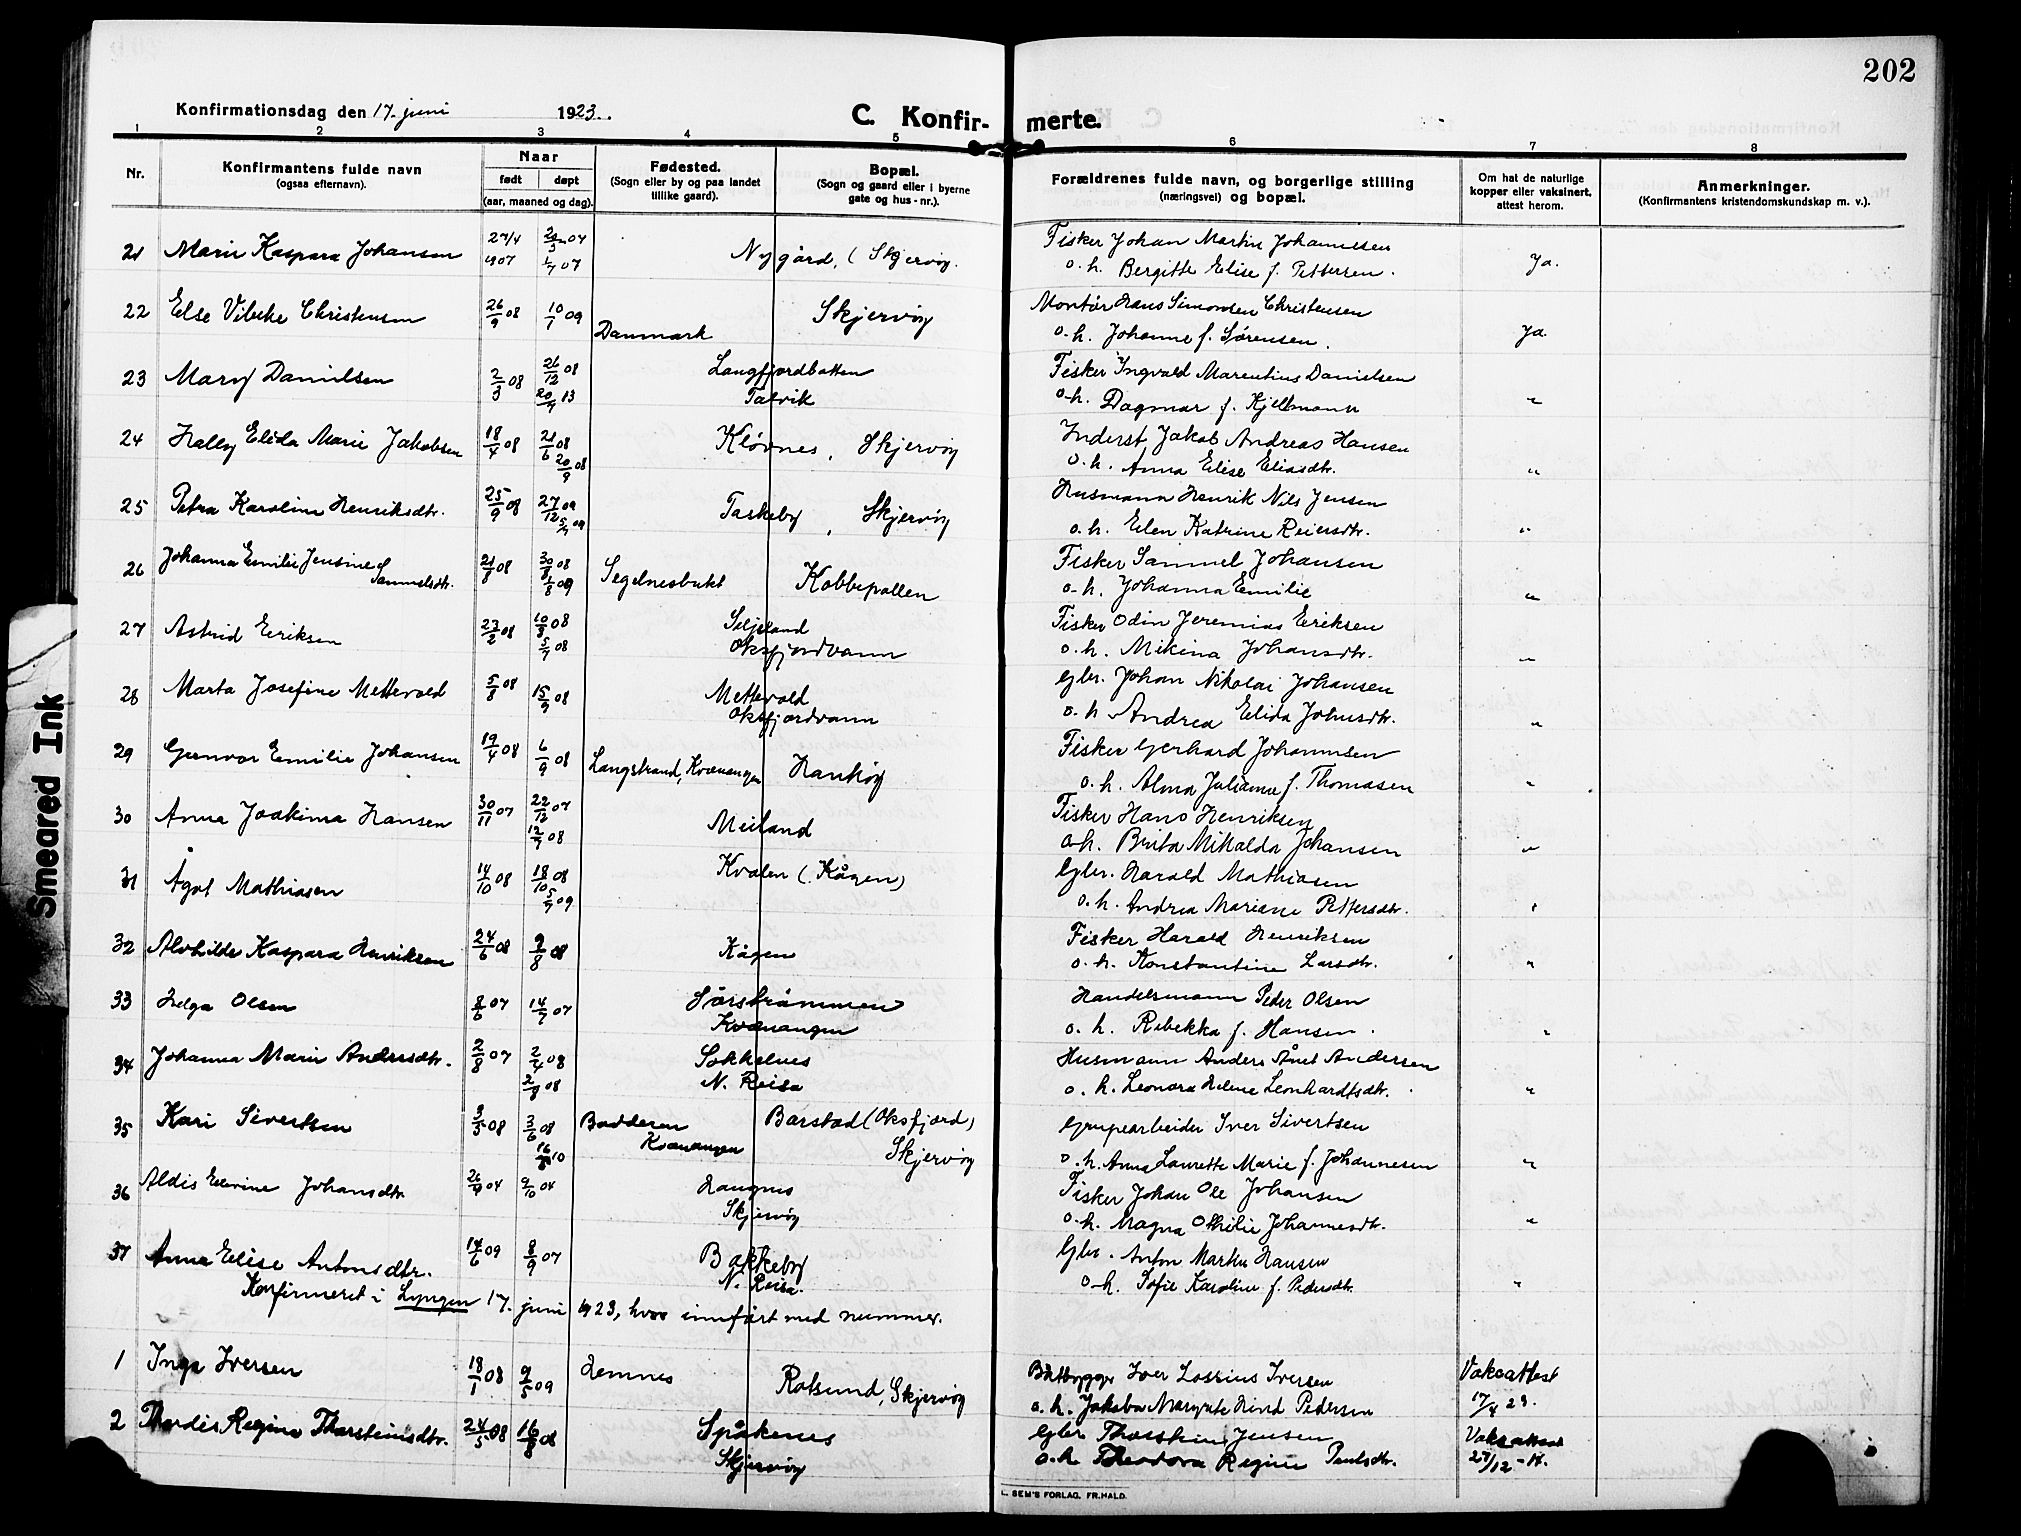 202
Konfirmationsdag den 17. juni 1923.
C. Konfir- merte.
1 2 3 4 5 6 7 8
Nr.
Konfirmantens fulde navn
(ogsaa efternavn).
Naar
født døpt
(aar, maaned og dag).
Fødested.
(Sogn eller by og paa landet
tillike gaard).
Bopæl.
(Sogn og gaard eller i byerne
gate og hus-nr.).
Forældrenes fulde navn, og borgerlige stilling
(næringsvei) og bopæl.
Om hat de naturlige
kopper eller vaksinert,
attest herom.
Anmerkninger.
(Konfirmantens kristendomskundskap m. v.).
21 Marie Kaspara Johansen 27/4 1907 1/7 07 Nygård, (Skjervøy. Fisker Johan Martin Johannesen Ja.
o. h. Bergitte Elise f. Pettersen.
22 Else Vibeke Christensen 26/9 08 10/1 09 Danmark Skjervøy Montør Hans Simonsen Christensen Ja.
o. h. Johanne f. Sørensen.
23 Mary Danielsen 2/3 08 26/12 08 Langfjordbotten Fisker Ingvald Marentius Danielsen
20/9 13 Talvik o. h. Dagmar f. Kjellmann "
24 Hally Elida Marie Jakobsen 18/4 08 21/6 08 Kløvnes, Skjervøy Inderst Jakob Andreas Hansen
20/9 08 o. h. Anna Elise Eliasdtr. "
25 Petra Karoline Henriksdtr. 25/9 08 27/12 09 Taskeby, Skjervøy Husmann Henrik Nils Jensen
o. h. Elen Katrine Reiersdtr. "
26 Johanna Emilie Jensine Samuelsdtr. 21/8 08 30/8 08 Segelnesbukt Kobbepollen Fisker Samuel Johansen
1/8 09 o. h. Johanna Emilie "
27 Astrid Eriksen 23/2 08 10/3 08 Seljeland Fisker Odin Jeremias Eriksen
5/7 08 Oksfjordvann o. h. Mikina Johansdtr. "
28 Marta Josefine Mettevold 5/8 08 15/9 08 Mettevold Gbr. Johan Nikolai Johansen
Oksfjordvann o. h. Andrea Elida Johnsdtr. "
29 Gunvor Emilie Johansen 19/4 08 6/9 08 Langstrand, Kvænangen Haukøy Fisker Gerhard Johannsen
o. h. Alma Julianne f. Thomasen "
30 Anna Joakima Hansen 30/11 07 22/12 07 Meiland Fisker Hans Henriksen
12/7 08 o. h. Berita Mikalda Johansen "
31 Ågot Mathiasen 14/10 08 18/10 08 Kvalen (Kågen) Gbr. Harald Mathiasen
5/9 09 o. h. Andrea Mariane Pettersdtr. "
32 Alvhilde Kaspara Henriksen 24/6 08 9/8 08 Kågen Fisker Harald Henriksen
o. h. Konstantine Larsdtr. "
33 Helga Olsen 8/6 07 14/7 07 Sørstrømmen Handelsmann Peder Olsen
Kvænangen o. h. Rebekka f. Hansen. "
34 Johanna Marie Andersdtr. 2/8 07 2/4 08 Sokkelnes Husmann Anders Ånet Andersen
2/8 08 N. Reisa o. h. Leonora Helene Leonhardtsdtr. "
35 Kari Sivertsen 3/5 08 3/6 08 Badderen Barstad (Oksfjord) Grupearbeider Iver Sivertsen
Kvænangen Skjervøy o. h. Anna Laurette Marie f. Johannesen "
36 Aldis Elvine Johansdtr 26/9 04 9/10 04 Haugnes Fisker Johan Ole Johansen
Skjervøy o. h. Magna Othilie Johannesdtr. "
37 Anna Elise Antonsdtr. 14/6 09 8/9 07 Bakkeby Gbr. Anton Martin Hansen
N. Reisa. o. h. Sofie Karoline f. Pedersdtr. "
Konfirmeret i Lyngen 17. juni 1923, hvor innført med nummer.
1 Inga Iversen 18/1 08 9/5 09 Hemnes Rotsund, Skjervøy Båtbygger Iver Iversen Vaksattest
o. h. Jakoba Margrete Lind Pedersen 17/4 23.
2 Thordis Regine Thorsteinsdtr. 24/5 08 16/8 08 Spåkenes Gbr Thorstein Jensen Vaksattest
Skjervøy o. h Theodora Regine Paulsdtr. 27/12-17.
SEM'S FORLAG, FR.HALD.
Smeared Ink